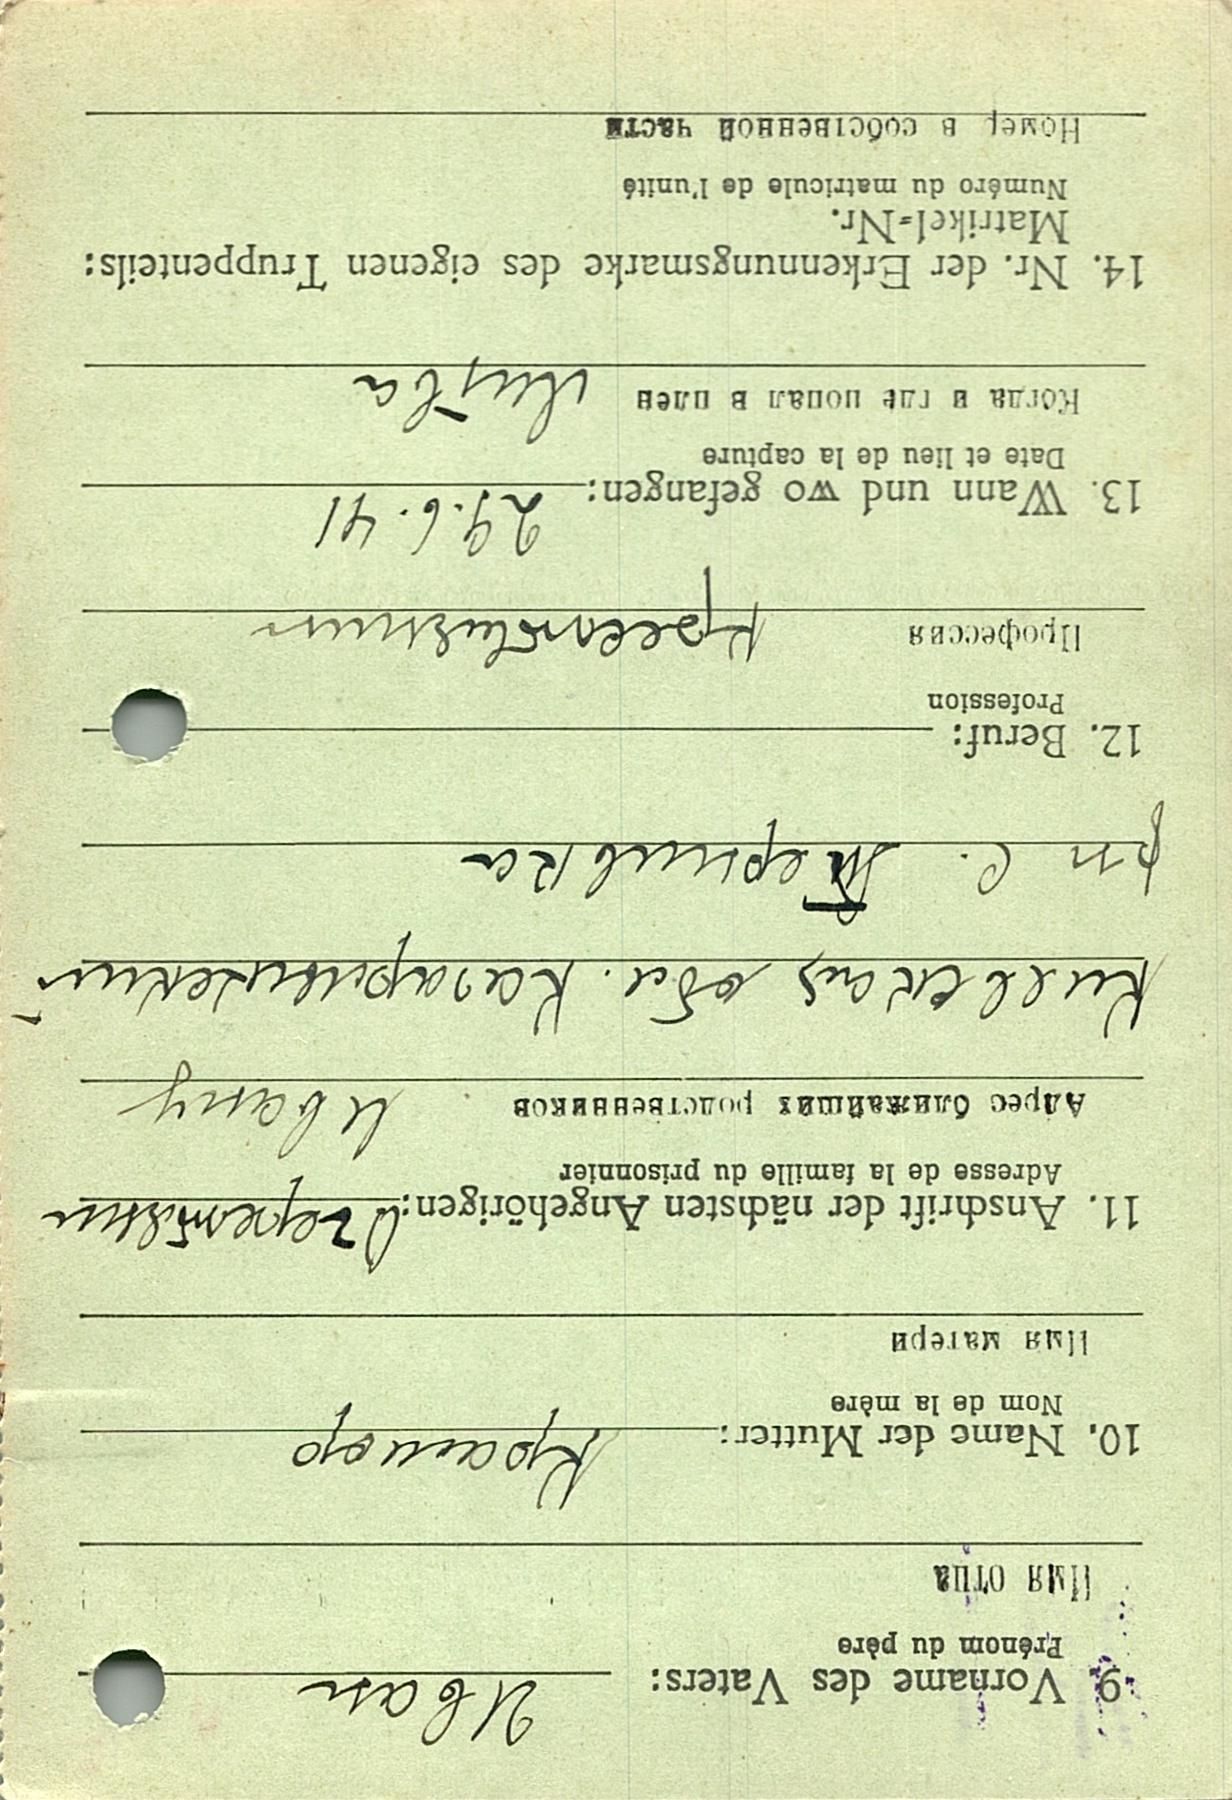 9. Vorname des Vaters: Иван
Prénom du père
Имя отца
10. Name der Mutter: Крамар
Nom de la mère
Имя матери
11. Anschrift der nächsten Angehörigen:
Adresse de la famille du prisonnier
Адрес ближайших родственников Ивану
Киевская обл.
рн С. Тернивка
12. Beruf:
Profession
Профессия
13. Wann und wo gefangen: 29.6.41
Date et lieu de la capture
Когда и где попал в плен Литва
14. Nr. der Erkennungsmarke des eigenen Truppenteils:
Matrikel=Nr.
Numéro du matricule de l'unité
Номер в собственной части